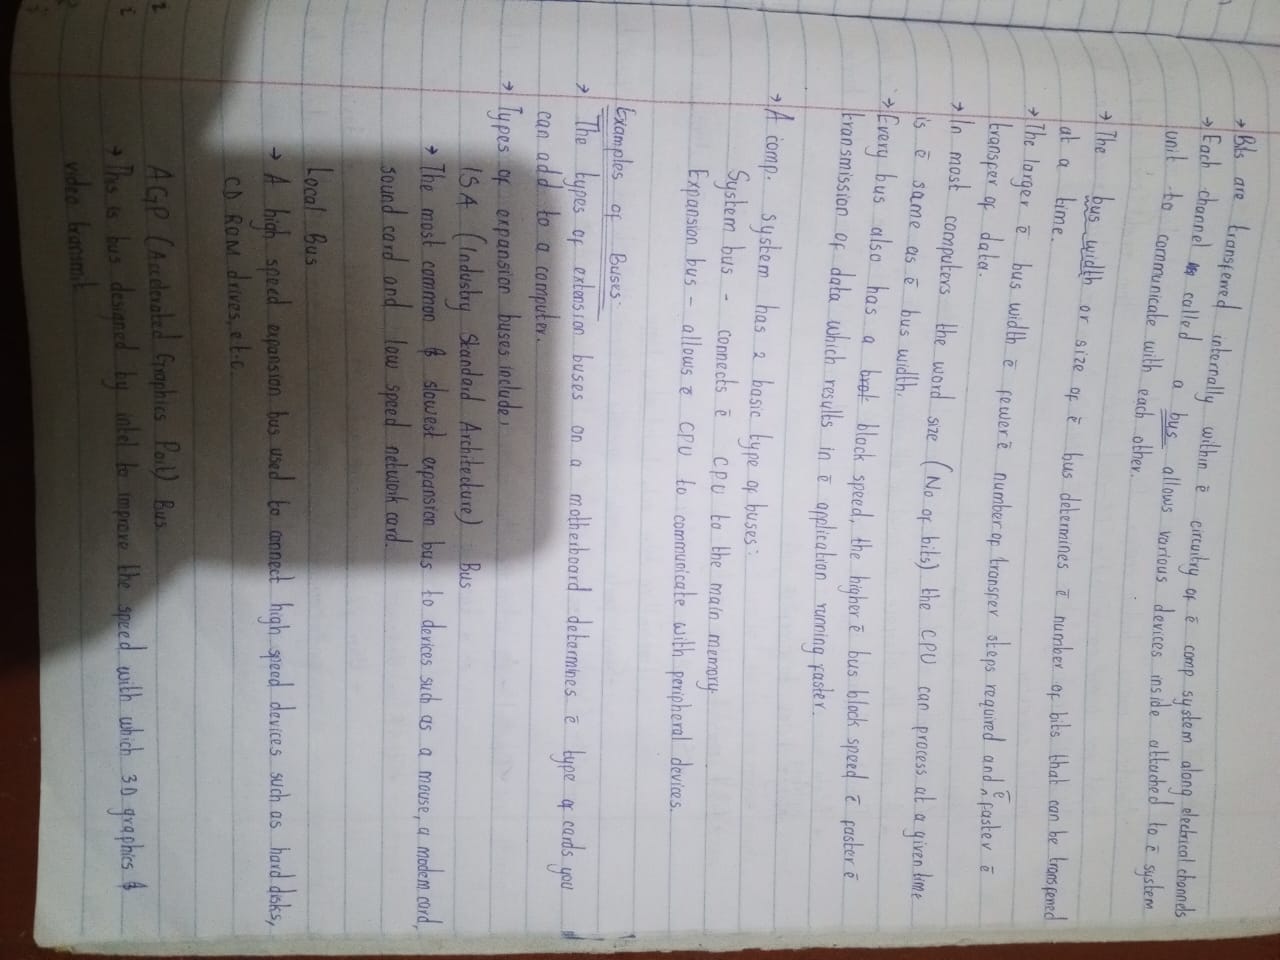 → Bits are transferred internally within ē circuitry of ē comp system along electrical channels
→ Each channel called a bus allows various devices inside attached to ē system
unit to communicate with each other.
→ The bus width or size of ē bus determines ē number of bits that can be transferred
at a time.
→ The larger ē bus width ē fewer ē number of transfer steps required and ē faster ē
transfer of data.
→ In most computers the word size (No of bits) the CPU can process at a given time
is ē same as ē bus width.
→ Every bus also has a block speed, the higher ē bus block speed ē faster ē
transmission of data which results in ē application running faster.
→ A comp. system has 2 basic type of buses:
System bus - connects ē CPU to the main memory
Expansion bus - allows ē CPU to communicate with peripheral devices.
Examples of Buses:
→ The types of extension buses on a motherboard determines ē type of cards you
can add to a computer.
→ Types of expansion buses include,
ISA (Industry Standard Architecture) Bus
→ The most common & slowest expansion bus to devices such as a mouse, a modem card,
sound card and low speed network card.
Local Bus
→ A high speed expansion bus used to connect high speed devices such as hard disks,
CD ROM drives, e.t.c.
AGP (Accelerated Graphics Port) Bus
→ This is bus designed by intel to improve the speed with which 3D graphics &
video transmit